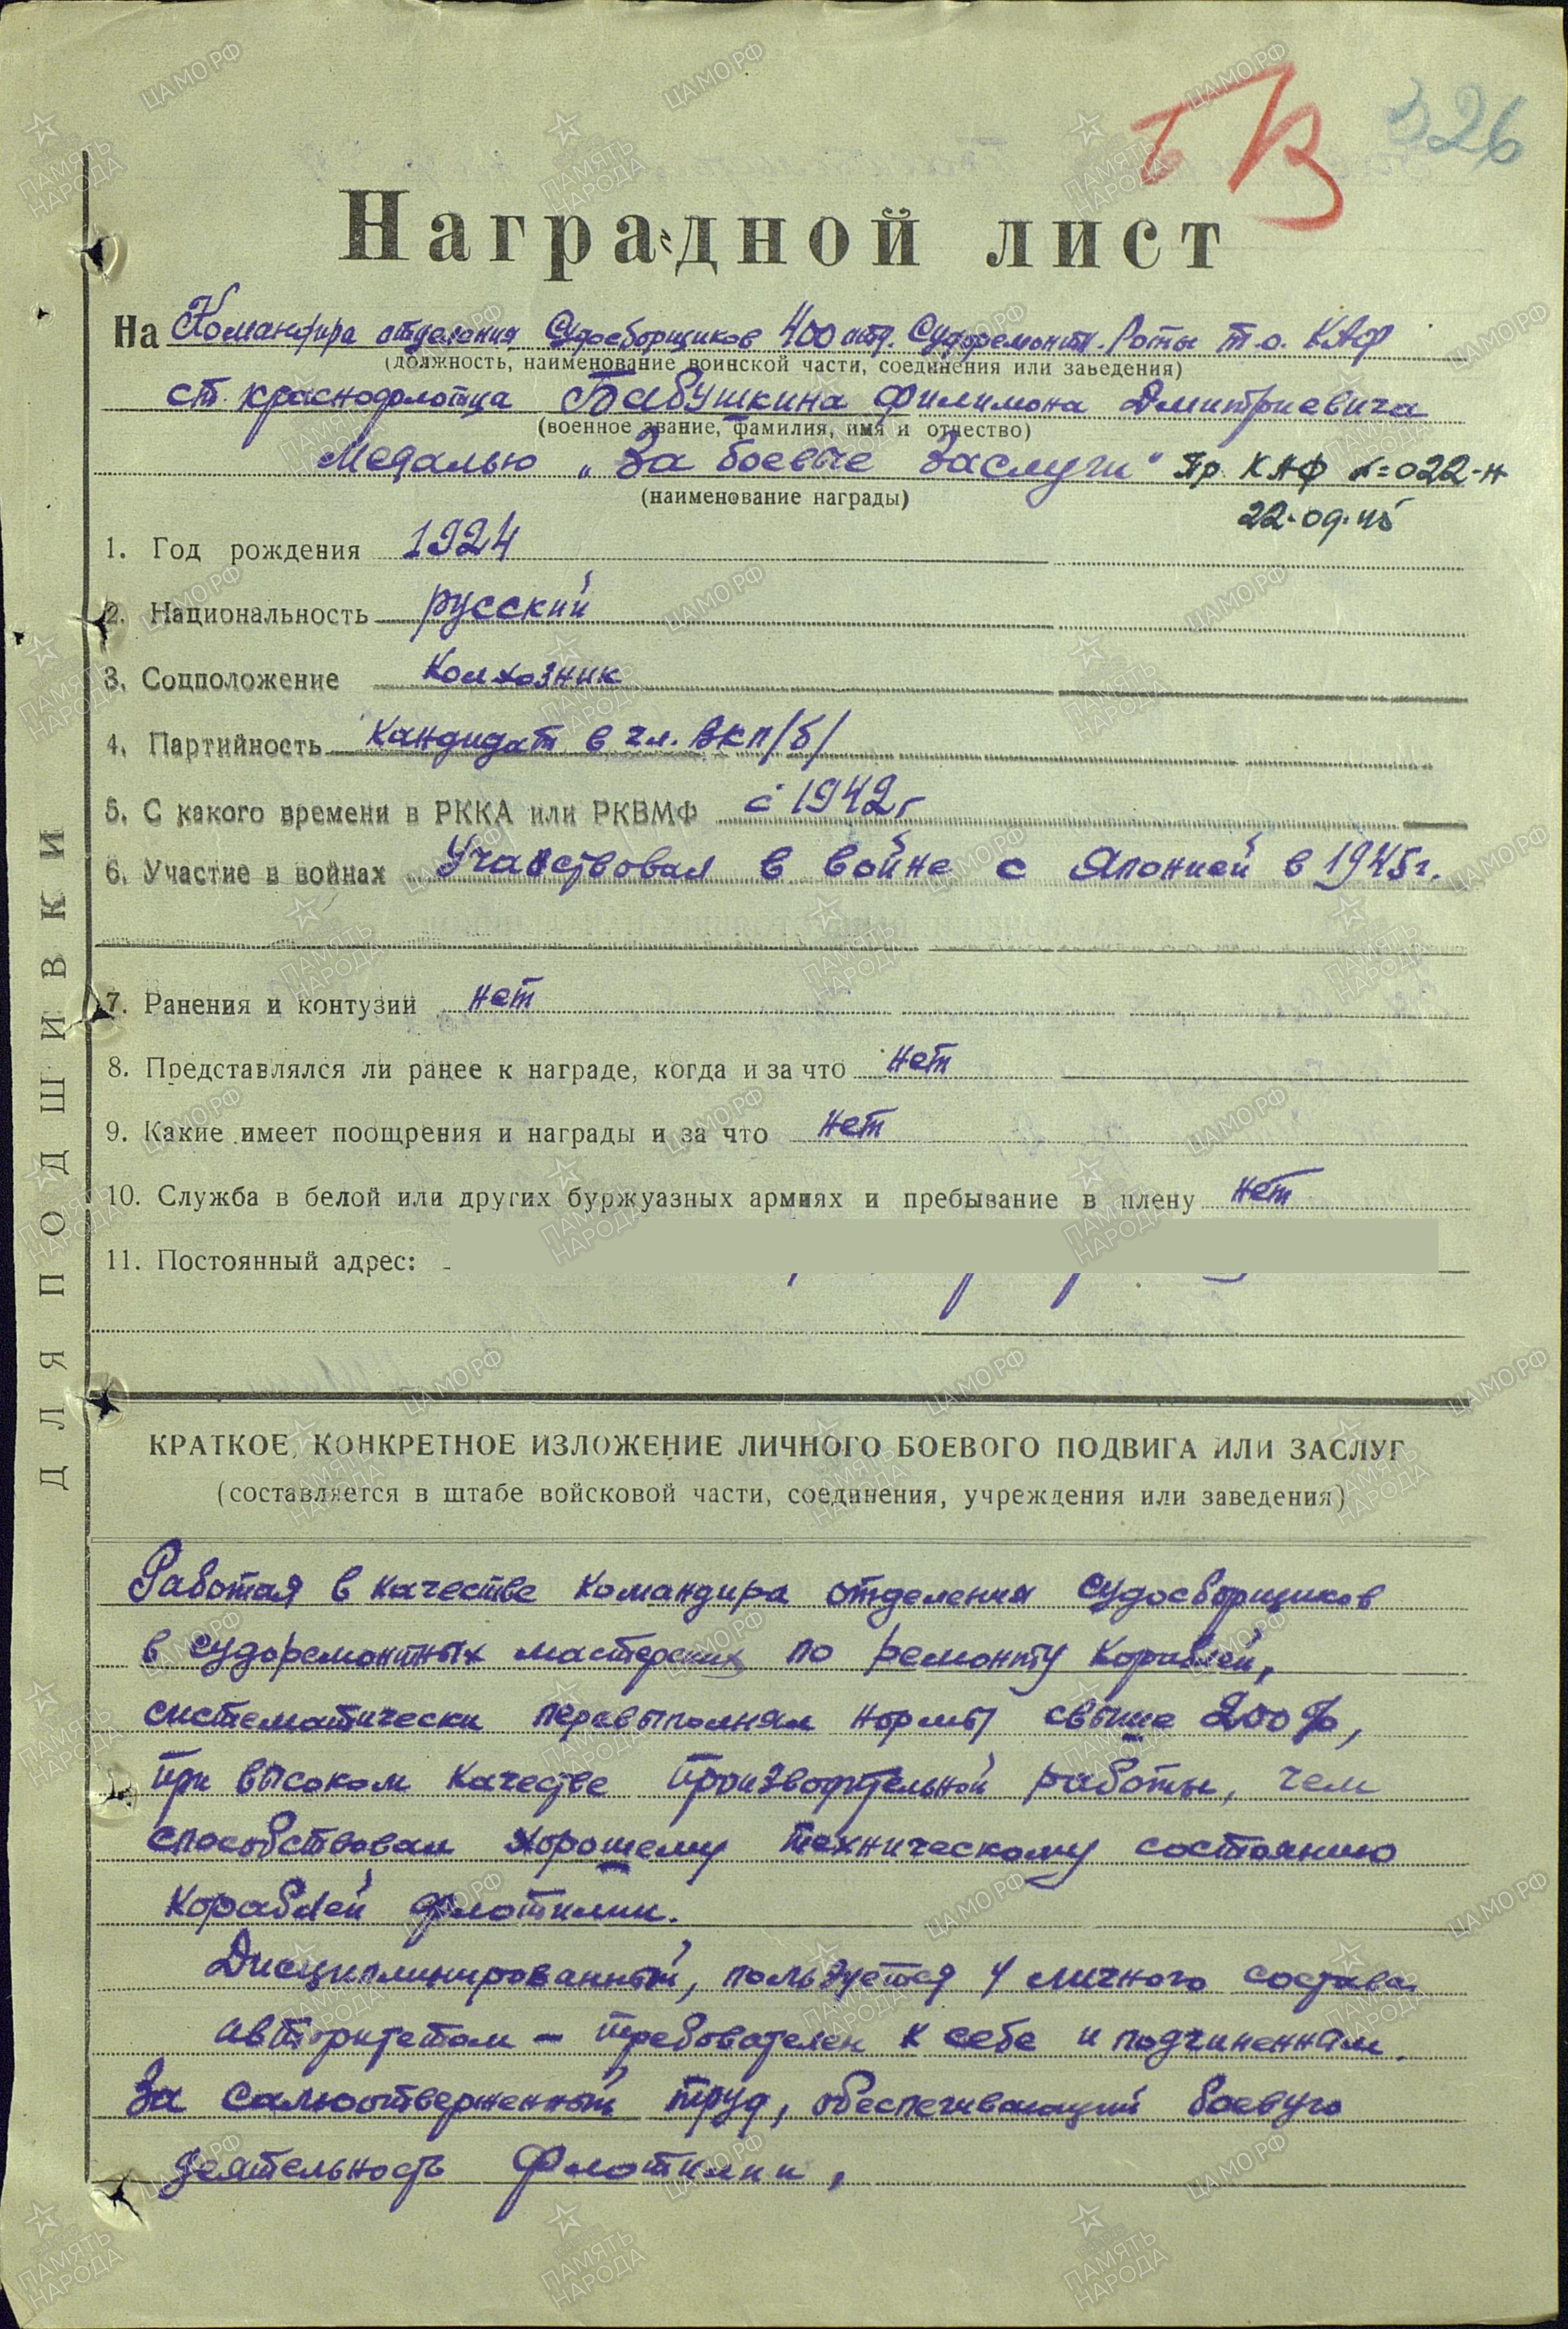 326
Наградной лист
На Командира отделения Судосборщиков 400 отд. Судоремонтн. Роты т.о. КАФ
(должность, наименование воинской части, соединения или заведения)
ст. краснофлотца Бабушкина Филимона Дмитриевича
(военное звание, фамилия, имя и отчество)
Медалью „За боевые Заслуги“ Пр. КАФ №=022-н
22.09.45
(наименование награды)
1. Год рождения 1924
2. Национальность русский
3. Соцположение Колхозник
4. Партийность Кандидат в чл. ВКП/б/
5. С какого времени в РККА или РКВМФ с 1942 г
6. Участие в войнах Участвовал в войне с Японией в 1945 г.
7. Ранения и контузии нет
8. Представлялся ли ранее к награде, когда и за что нет
9. Какие имеет поощрения и награды и за что нет
10. Служба в белой или других буржуазных армиях и пребывание в плену нет
11. Постоянный адрес:
КРАТКОЕ, КОНКРЕТНОЕ ИЗЛОЖЕНИЕ ЛИЧНОГО БОЕВОГО ПОДВИГА ИЛИ ЗАСЛУГ
(составляется в штабе войсковой части, соединения, учреждения или заведения)
Работая в качестве командира отделения судосборщиков
в судоремонтных мастерских по ремонту кораблей,
систематически перевыполнял нормы свыше 200%,
при высоком качестве производительной работы, чем
способствовал хорошему техническому состоянию
кораблей флотилии.
Дисциплинированный, пользуется у личного состава
авторитетом – требователен к себе и подчиненным.
За самоотверженный труд, обеспечивающий боевую
деятельность флотилии,
ДЛЯ ПОДШИВКИ
ПАМЯТЬ НАРОДА
ЦАМО.РФ